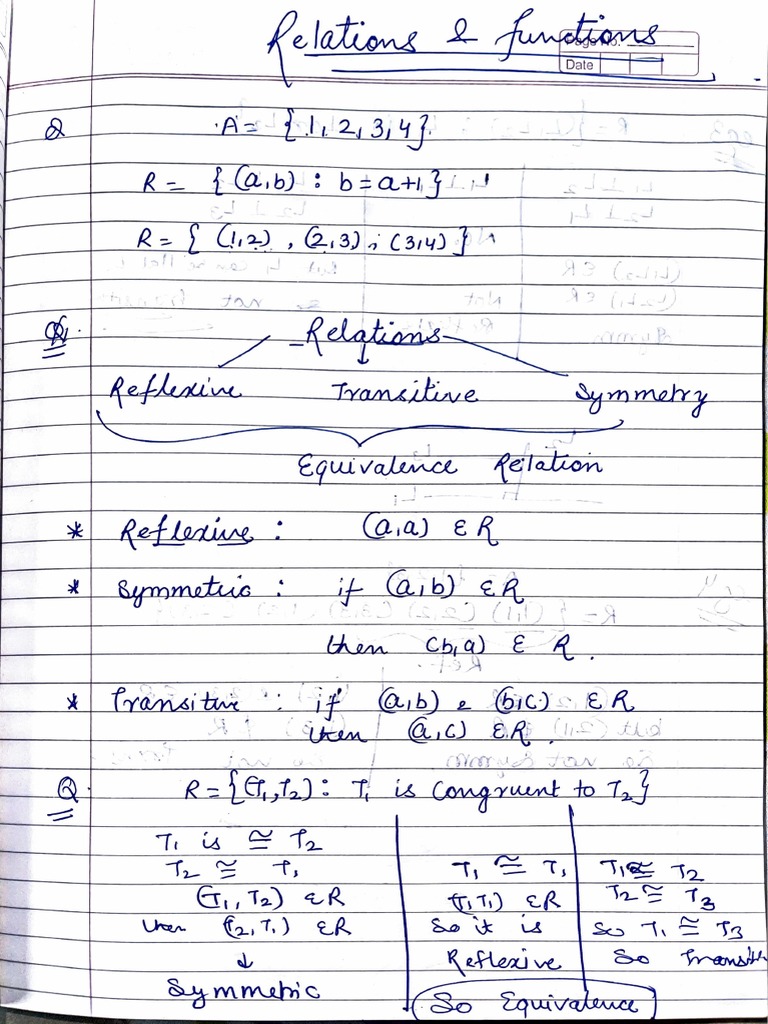 Relations & functions
Page No.
Date
Q A = {1, 2, 3, 4}
R = {(a,b) : b = a+1}
R = { (1,2) , (2,3) ; (3,4) }
Q. Relations
Reflexive Transitive Symmetry
Equivalence Relation
* Reflexive : (a,a) ∈ R
* Symmetric : if (a,b) ∈ R
then (b,a) ∈ R.
* Transitive : if (a,b) & (b,c) ∈ R
then (a,c) ∈ R.
Q. R = {(T₁,T₂) : T₁ is congruent to T₂}
T₁ is ≅ T₂
T₂ ≅ T₁
(T₁, T₂) ∈ R
then (T₂, T₁) ∈ R
↓
Symmetric
T₁ ≅ T₁
(T₁,T₁) ∈ R
So it is
Reflexive
T₁ ≅ T₂
T₂ ≅ T₃
so T₁ ≅ T₃
So Transitiv
So Equivalence